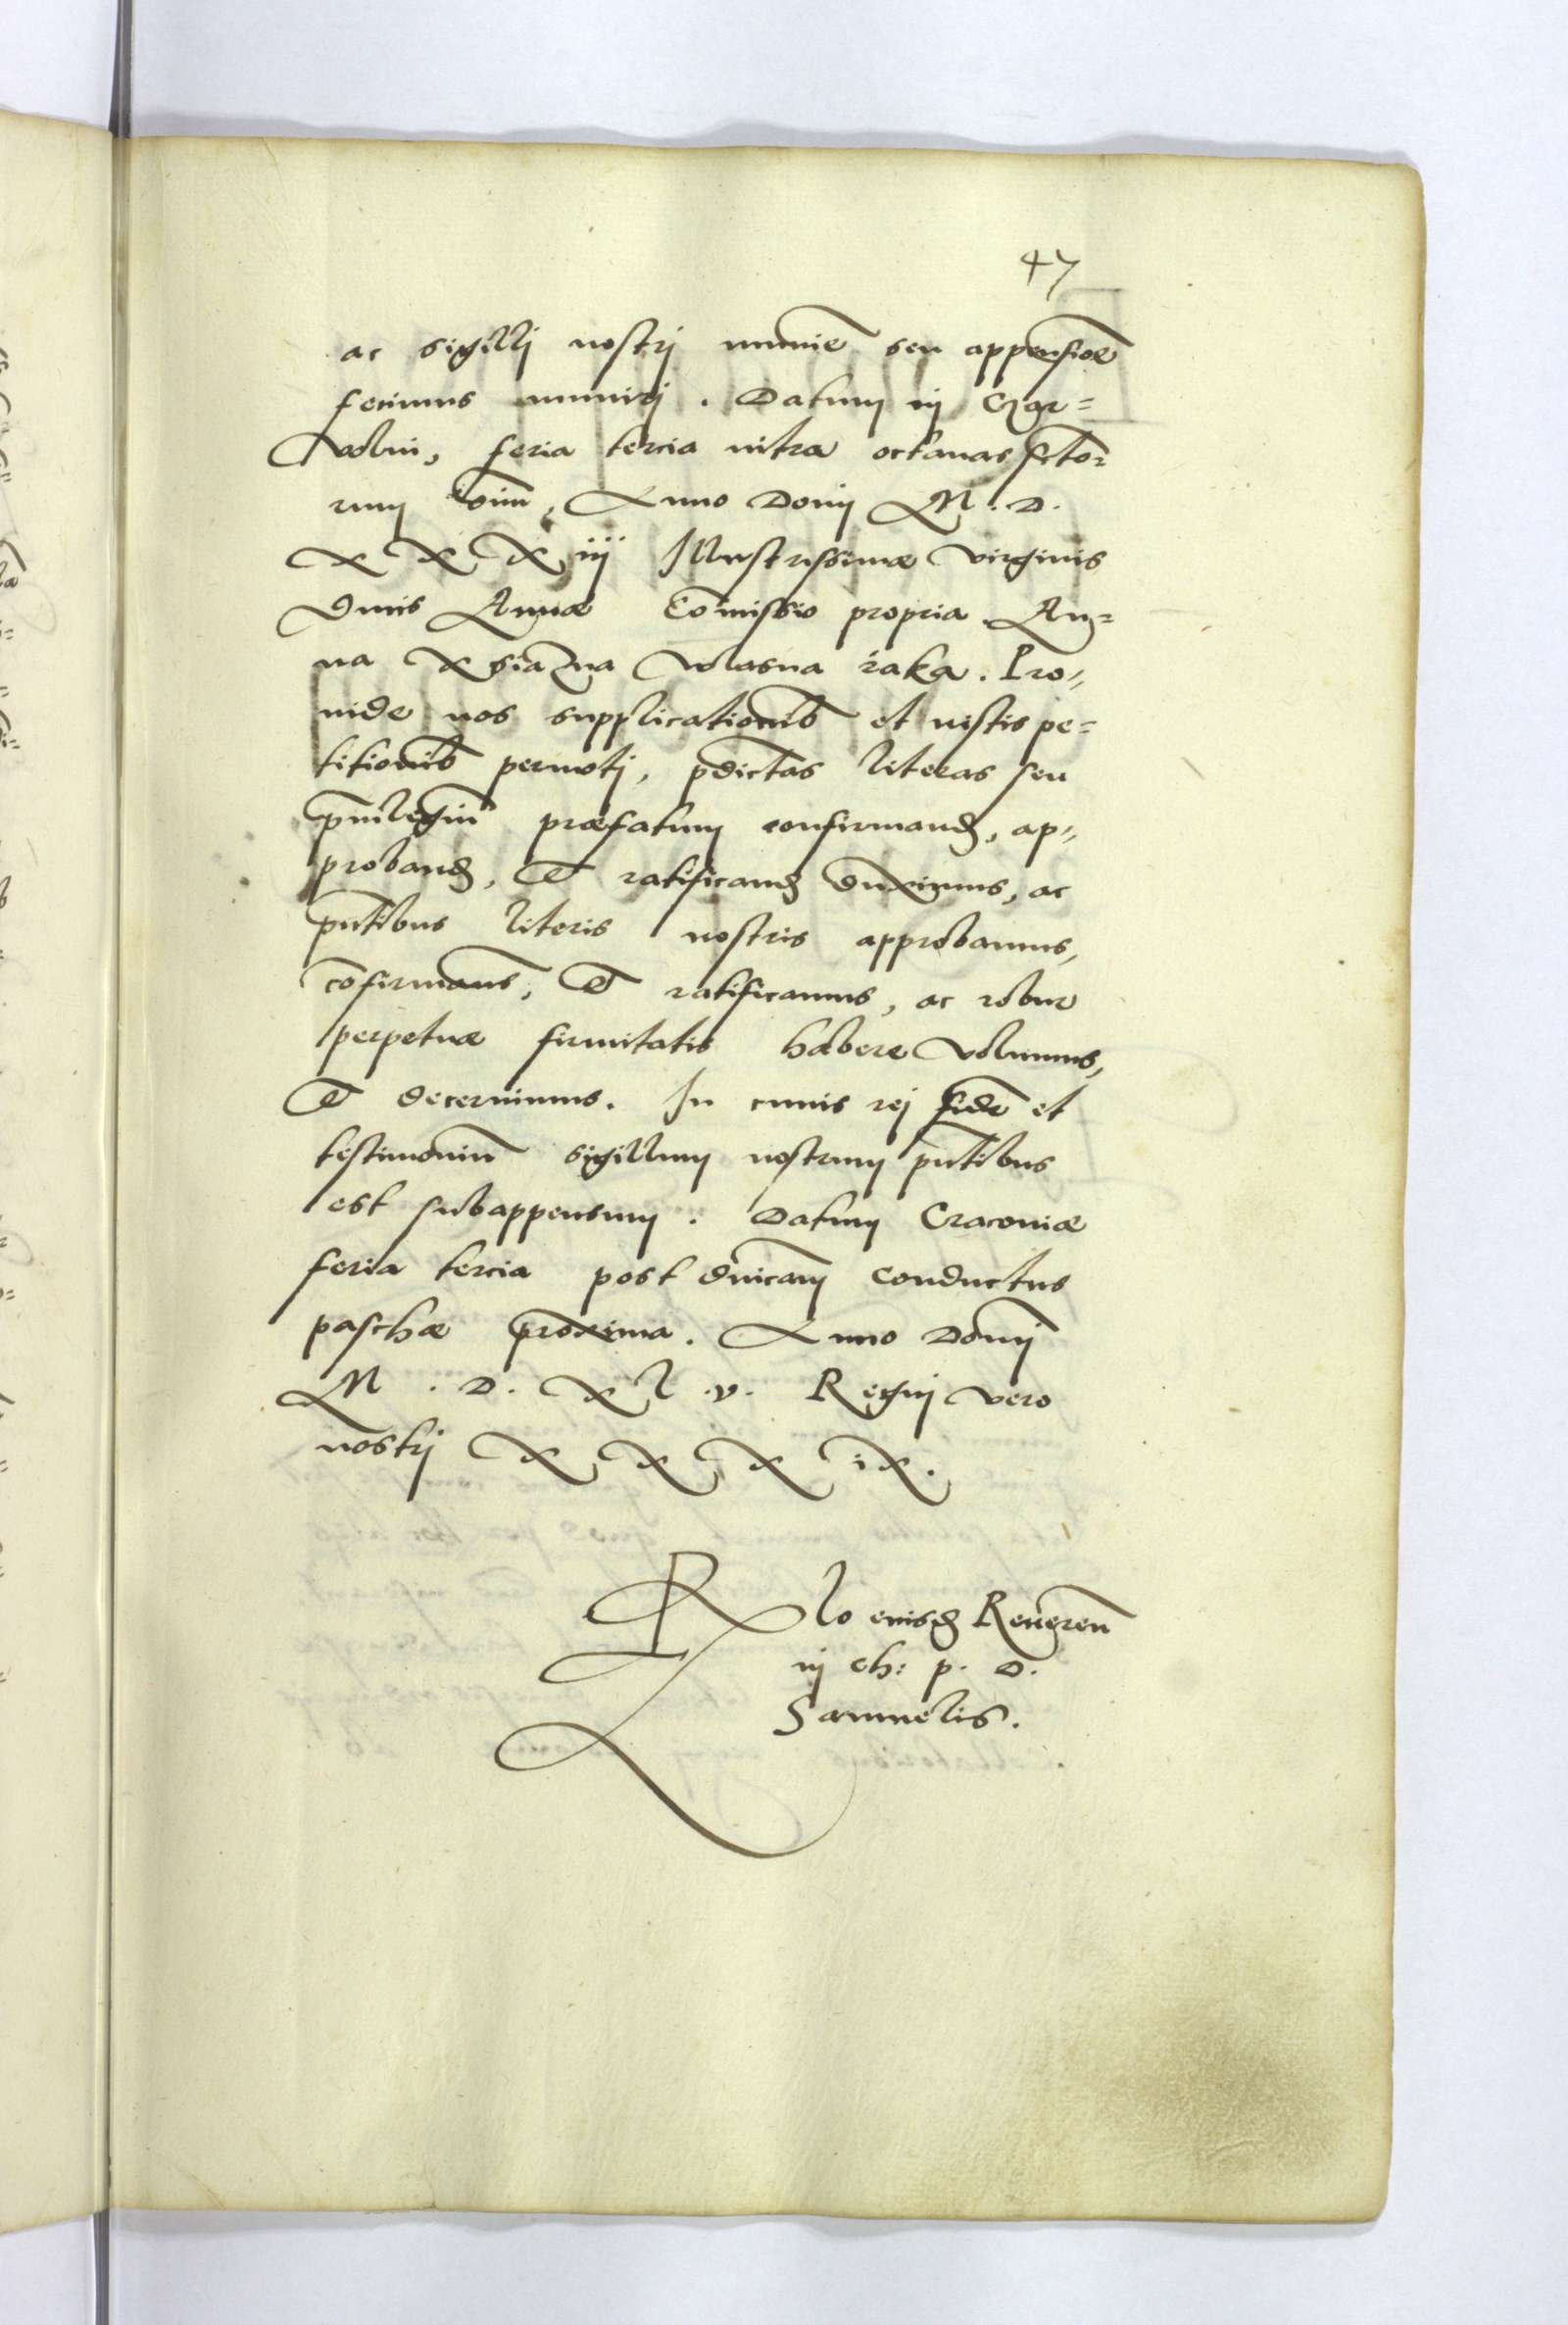 47
ac sigillj nostrj munīe seu appensiōe
fecimus munirj. Datum in Czar=
wolin, feria tercia intra octauas scto=
rum oīm, Anno Donij M. D.
XXXiij Illustrissimæ virginis
Dnīs Annæ Cōmissio propria An=
na Xsiazna wlasna raka. Pro=
uide nos supplicationib et iustis pe=
titionib permotj, p̄dictas literas seu
p̄uilegiū præfatum confirmand, ap=
proband, et ratificand duximus, ac
pn̄tibus literis nostris approbamus,
cōfirmams, et ratificamus, ac robur
perpetuæ firmitatis habere volumus,
et decernimus. In cuius rej fidē et
testimoniū sigillum nostrum pn̄tibus
est subappensum. Datum Cracouiæ
feria tercia post dn̄icam conductus
paschæ proxima. Anno Donij
M. D. Xl.v. Regnj vero
nostrj XXXiX.
Rlo eiusd Reueren
in ch: p. D.
Samuelis.